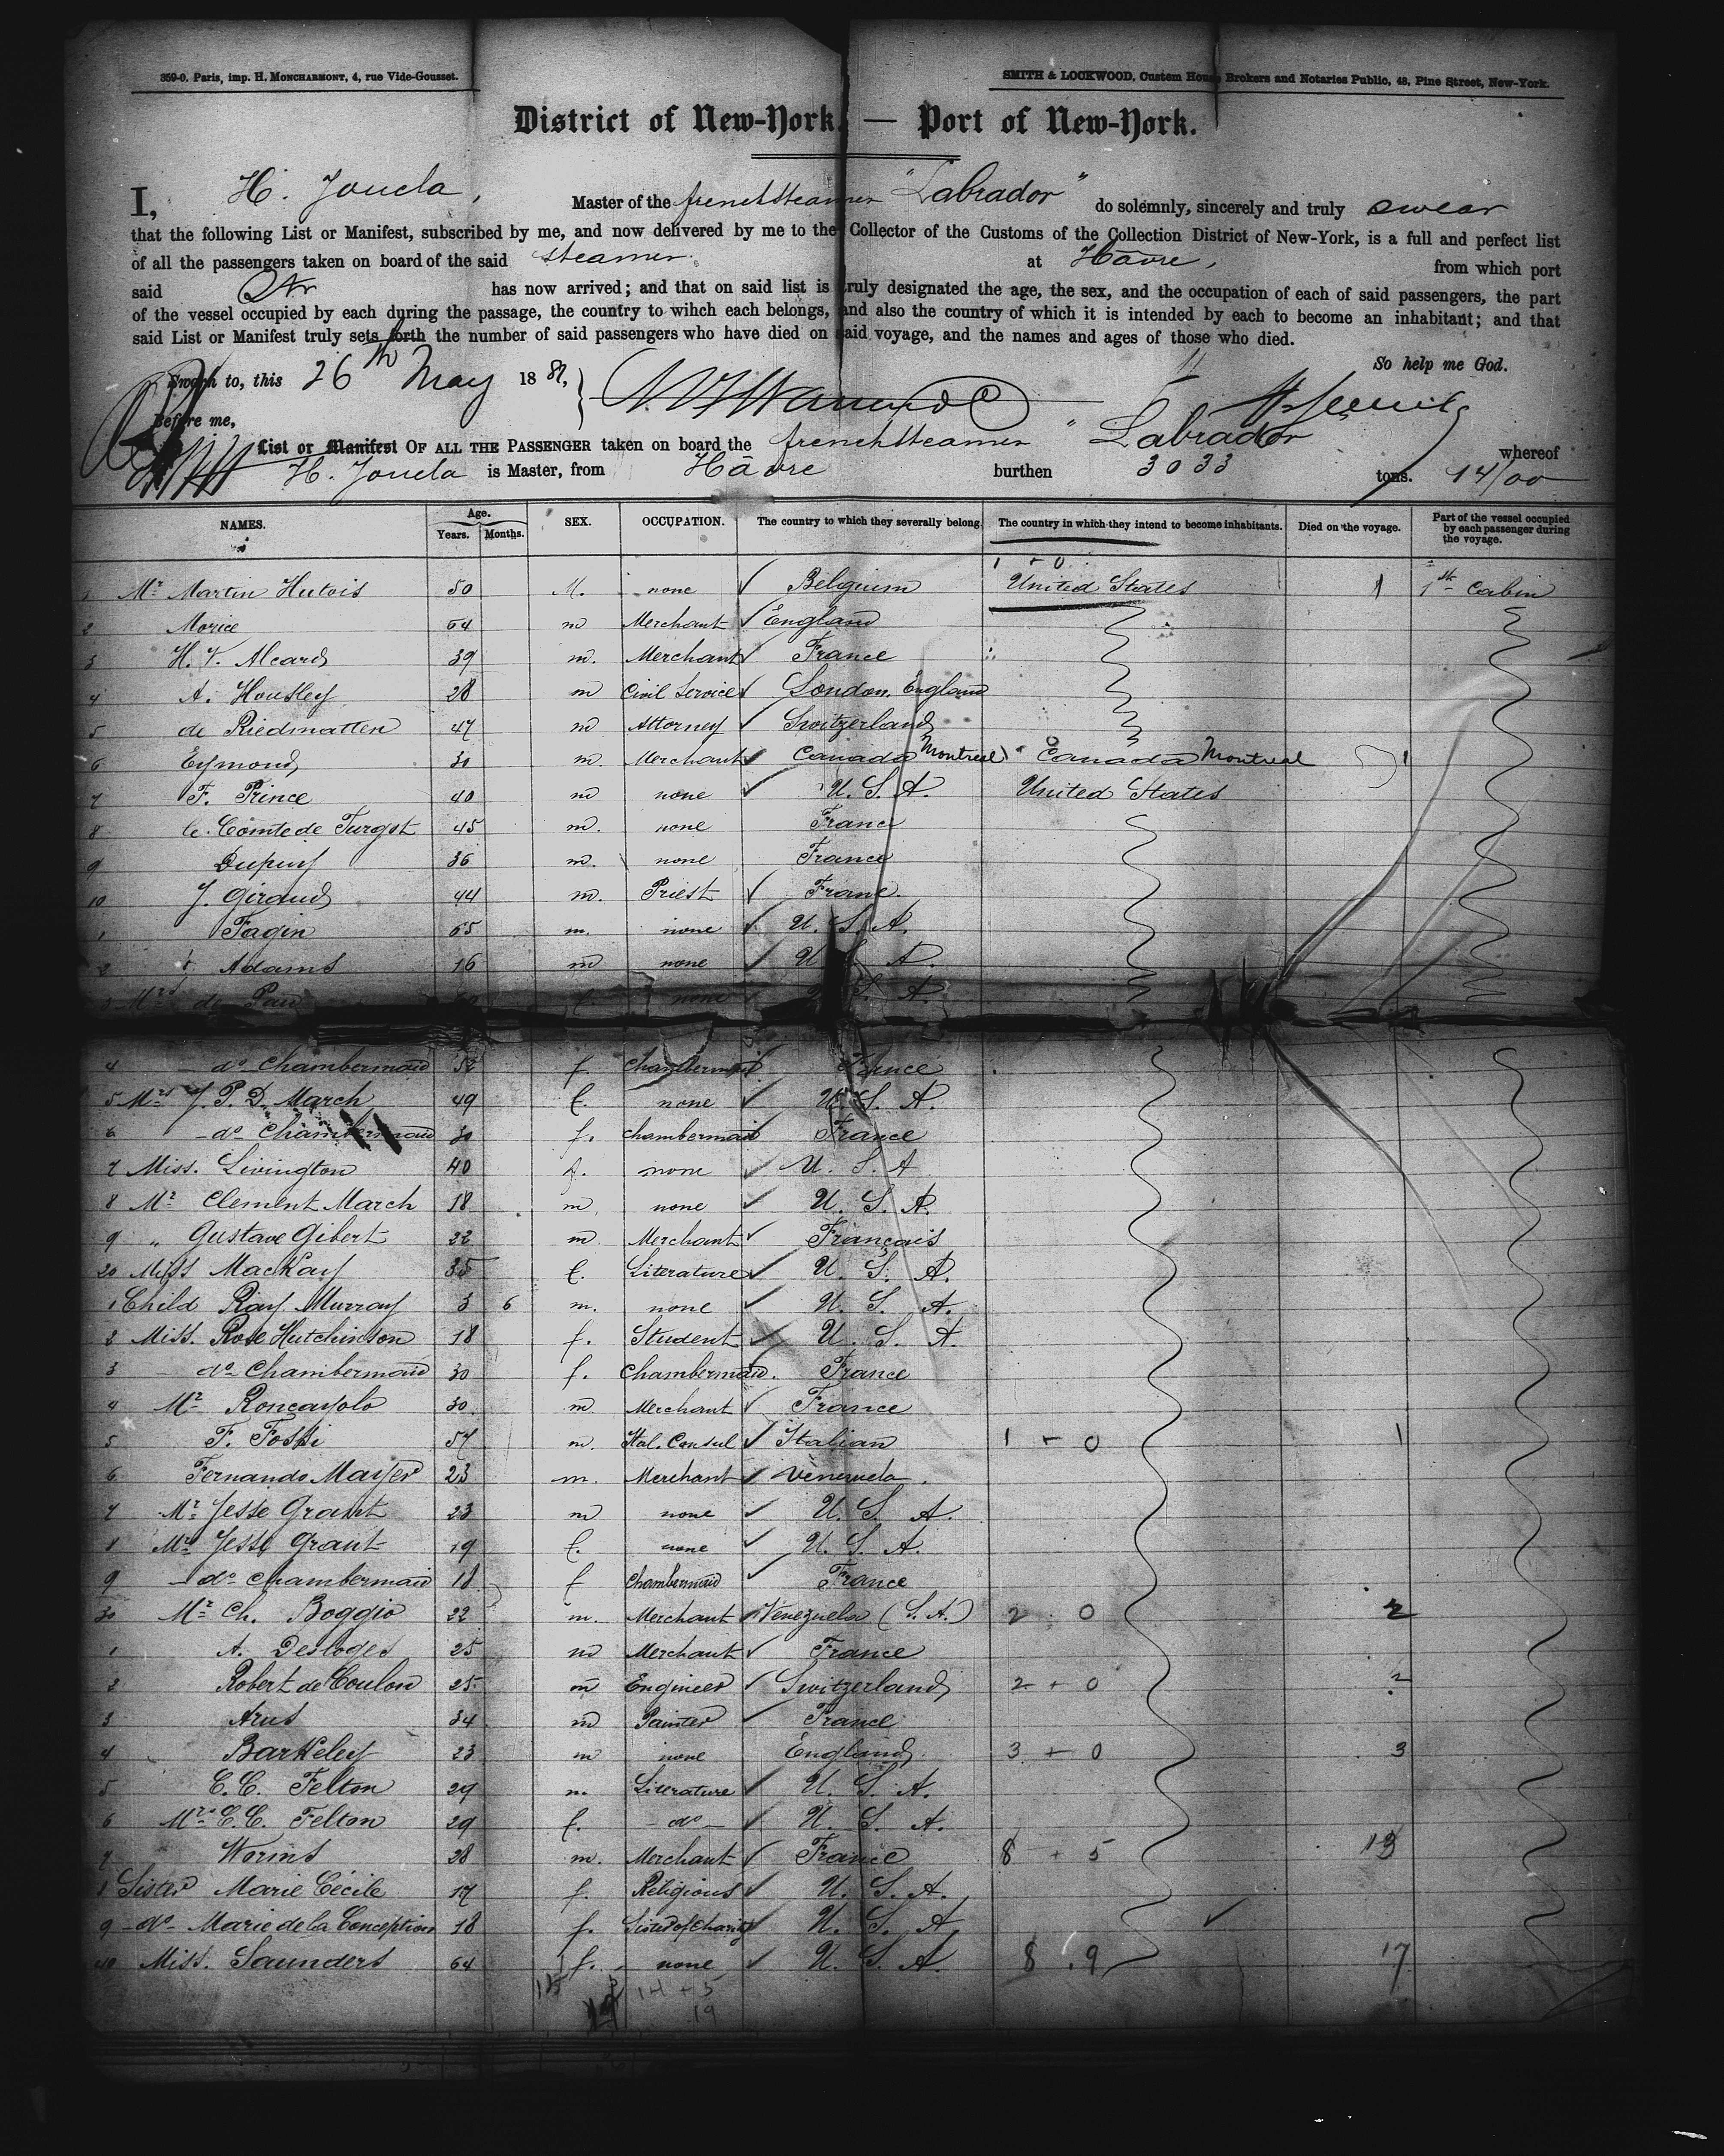 359-0. Paris, imp. H. MONCHARMONT, 4, rue Vide-Gousset.
SMITH & LOCKWOOD, Custom House Brokers and Notaries Public, 48, Pine Street, New-York.
District of New-York. — Port of New-York.
I, H. Joucla, Master of the french steamer "Labrador" do solemnly, sincerely and truly swear
that the following List or Manifest, subscribed by me, and now delivered by me to the Collector of the Customs of the Collection District of New-York, is a full and perfect list
of all the passengers taken on board of the said steamer at Hâvre, from which port
said Str has now arrived; and that on said list is truly designated the age, the sex, and the occupation of each of said passengers, the part
of the vessel occupied by each during the passage, the country to wihch each belongs, and also the country of which it is intended by each to become an inhabitant; and that
said List or Manifest truly sets forth the number of said passengers who have died on said voyage, and the names and ages of those who died.
So help me God.
Sworn to, this 26th May 1881,
Before me,
List or Manifest OF ALL THE PASSENGER taken on board the french steamer "Labrador whereof
H. Joucla is Master, from Hâvre burthen 3033 tons. 14/00
NAMES. Age. Years. Months. SEX. OCCUPATION. The country to which they severally belong. The country in which they intend to become inhabitants. Died on the voyage. Part of the vessel occupied by each passenger during the voyage.
1 + 0
1 Mr Martin Hutois 50 M. none Belgium United States 1 1st Cabin
2 Morice 64 m Merchant England
3 H. V. Alcard 39 m. Merchant France
4 A. Housley 28 m Civil Service London. England
5 de Riedmatten 47 m Attorney Switzerland
6 Eymond 30 m. Merchant Canada Montreal Canada Montreal 1
7 F. Prince 40 m none U. S. A. United States
8 le Comte de Turgot 45 m. none France
9 Dupuy 36 m. none France
10 J. Giraud 44 m. Priest Franc
1 Fagin 65 m. none U. S. A.
2 Adams 16 m none U. S. A.
3 Mrs de Pau f. none U. S. A.
4 - do Chambermaid 52 f. Chambermaid France
5 Mrs J. P. D. March 49 f. none U. S. A.
6 - do Chambermaid 30 f. Chambermaid France
7 Miss. Livington 40 f. none U. S. A
8 Mr Clement March 18 m none U. S. A.
9 " Gustave Gibert 22 m Merchant Français
20 Miss MacKay 35 f. Literature U. S. A.
1 Child Ray Murray 3 6 m. none U. S. A.
2 Miss. Rose Hutchinson 18 f. Student U. S. A.
3 - do Chambermaid 30 f. Chambermaid. France
4 Mr Roncayolo 30 m Merchant France
5 F. Fossi 57 m. Ital. Consul Italian 1 + 0 1
6 Fernando Mayer 23 m. Merchant Venezuela.
7 Mr Jesse Grant 23 m none U. S. A.
8 Mrs Jesse Grant 19 f. none U. S. A.
9 - do Chambermaid 18 f Chambermaid France
30 Mr Ch. Boggio 22 m. Merchant Venezuela (S. A.) 2 0 2
1 A. Desloges 25 m Merchant France
2 Robert de Coulon 25 m Engineer Switzerland 2 + 0 2
3 Arus 34 m Painter France
4 Barkeley 23 m none England 3 + 0 3
5 C. C. Felton 29 m. Literature U. S. A.
6 Mrs C. C. Felton 29 f. - do - U. S. A.
7 Worms 28 m. Merchant France 8 + 5 13
8 Sister Marie Cécile 17 f. Religious U. S. A.
9 - do - Marie de la Conception 18 f. Sister of Charity U. S. A.
40 Miss. Saunders 64 f. none U. S. A. 8 . 9 17
14 + 5
19